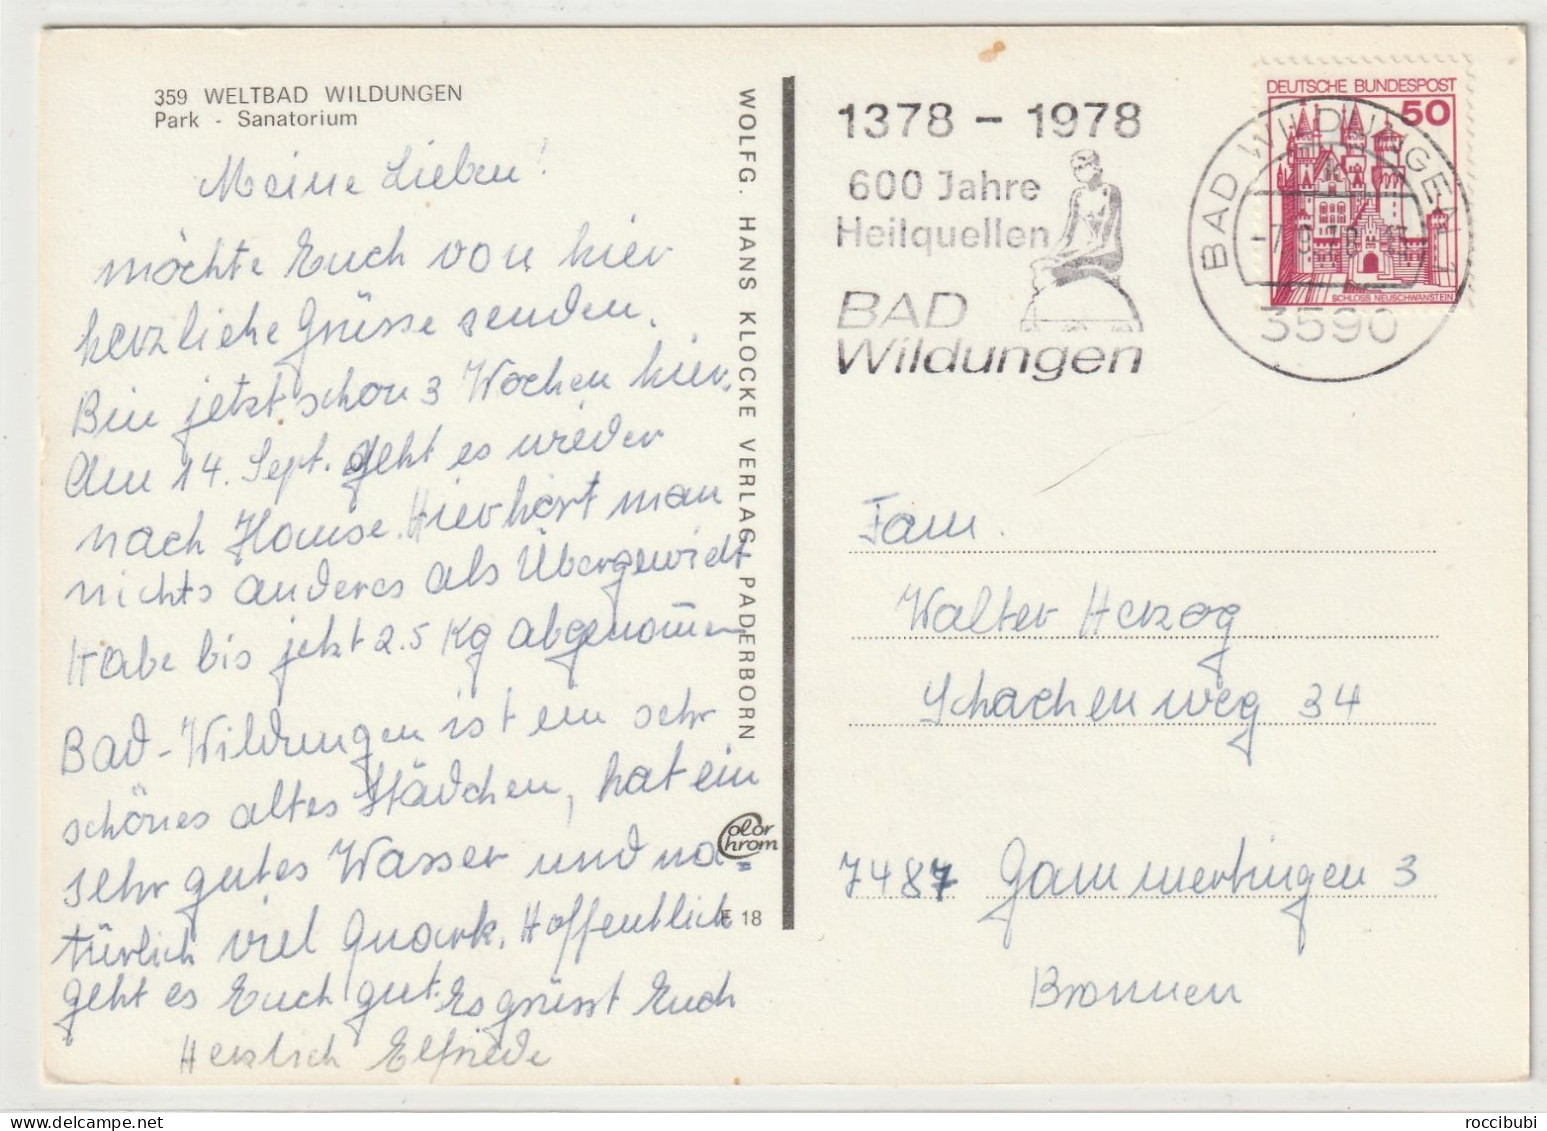 359 WELTBAD WILDUNGEN
Park - Sanatorium
Meine Lieben!
möchte Euch von hier
herzliche Grüsse senden.
Bin jetzt schon 3 Wochen hier.
Am 14. Sept. geht es wieder
nach Hause. Hier hört man
nichts anderes als Übergewicht
Habe bis jetzt 2.5 Kg abgenom̄en
Bad-Wildungen ist ein sehr
schönes altes Städchen, hat ein
sehr gutes Wasser und na=
türlich viel Quark. Hoffentlich
geht es Euch gut. Es grüsst Euch
Herzlich Elfriede
WOLFG. HANS KLOCKE VERLAG PADERBORN
Color Chrom
F 18
1378 - 1978
600 Jahre
Heilquellen
BAD
Wildungen
DEUTSCHE BUNDESPOST
50
SCHLOSS NEUSCHWANSTEIN
BAD WILDUNGEN 1
3590
Fam.
Walter Herzog
Schachenweg 34
7487 Gammertingen 3
Bronnen
roccibubi